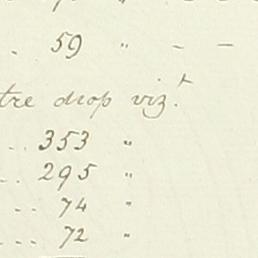 59 " - -
tre drop vizt.
.. 353 "
.. 295 "
... 74 "
... 72 "